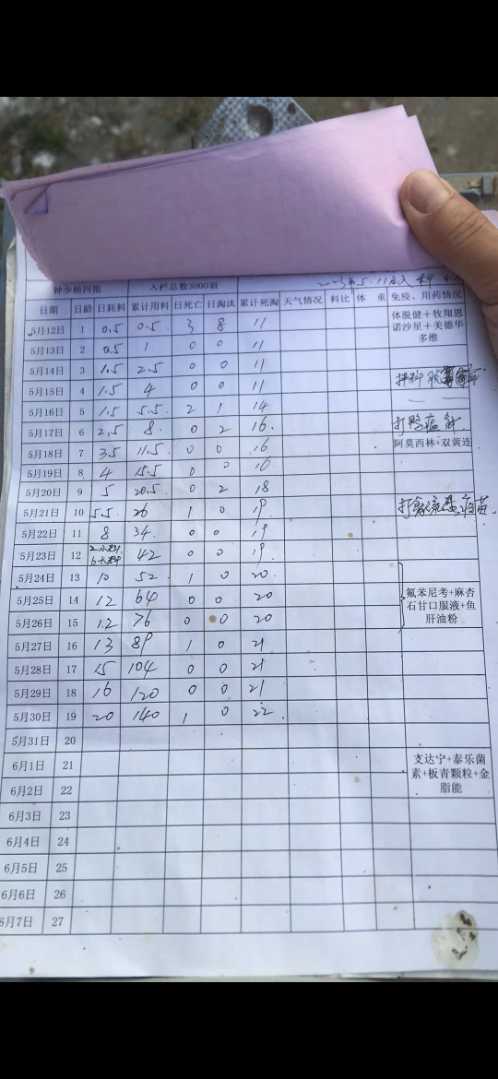 入栏总数3000羽
日期 日龄 日耗料 累计用料 日死亡 日淘汰 累计死淘 天气情况 料比 体重 免疫、用药情况
5月12日 1 0.5 0.5 3 8 11 体脱健+牧翔恩诺沙星+美德华多维
5月13日 2 0.5 1 0 0 11
5月14日 3 1.5 2.5 0 0 11
5月15日 4 1.5 4 0 0 11
5月16日 5 1.5 5.5 2 1 14
5月17日 6 2.5 8 0 2 16 打鸭瘟针
5月18日 7 3.5 11.5 0 0 16 阿莫西林+双黄连
5月19日 8 4 15.5 0 0 16
5月20日 9 5 20.5 0 2 18
5月21日 10 5.5 26 1 0 19 疫苗
5月22日 11 8 34 0 0 19
5月23日 12 42 0 0 19
5月24日 13 10 52 1 0 20
5月25日 14 12 64 0 0 20 氟苯尼考+麻杏石甘口服液+鱼肝油粉
5月26日 15 12 76 0 0 20
5月27日 16 13 89 1 0 21
5月28日 17 15 104 0 0 21
5月29日 18 16 120 0 0 21
5月30日 19 20 140 1 0 22
5月31日 20
6月1日 21 支达宁+泰乐菌素+板青颗粒+金脂能
6月2日 22
6月3日 23
6月4日 24
6月5日 25
6月6日 26
6月7日 27